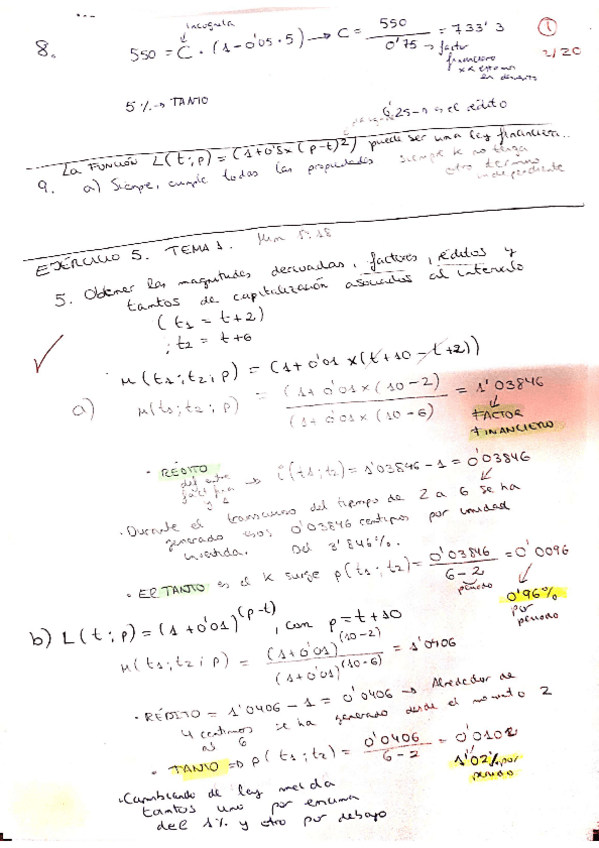 incognita
8. 550 = C · (1-0'05·5) → C = 550 / 0'75 = 733'3
→ factor
financiero
1
2/20
5% → TANTO
0'25 → es el rédito
La FUNCIÓN L(t;p) = (1+0'5x(p-t)^2) puede ser una ley financiera..
9. a) Siempre, cumple todas las propiedades siempre k no tenga
otro termino
independiente
EJERCICIO 5. TEMA 1.
5. Obtener las magnitudes derivadas, factores, réditos y
tantos de capitalización asociados al intervalo
(t1 = t+2)
; t2 = t+6
μ(t1;t2;p) = (1+0'01x(t+10-t+2))
a) μ(t1;t2;p) = (1+0'01x(10-2) / (1+0'01x(10-6) = 1'03846
FACTOR
FINANCIERO
· RÉDITO → i(t1;t2) = 1'03846 - 1 = 0'03846
dif entre
fact fin
y 1
· Durante el transcurso del tiempo de 2 a 6 se ha
generado 0'03846 centimos por unidad
invertida. Del 3'846%.
· El TANTO es el k surge ρ(t1;t2) = 0'03846 / 6-2 = 0'0096
periodo
0'96%
por
periodo
b) L(t;p) = (1+0'01)^(p-t), con p=t+10
μ(t1;t2;p) = (1+0'01)^(10-2) / (1+0'01)^(10-6) = 1'0406
· RÉDITO = 1'0406 - 1 = 0'0406 → Alrededor de
4 centimos se ha generado desde el momento 2
al 6
· TANTO ⇒ ρ(t1;t2) = 0'0406 / 6-2 = 0'0102
1'02% por
periodo
· Cambiando de ley me da
tantos uno por encima
del 1% y otro por debajo